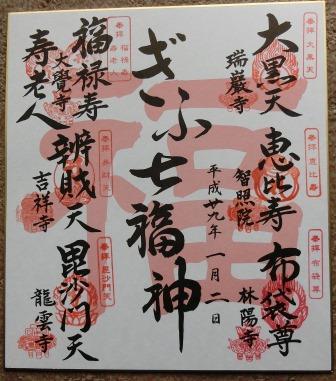 奉拝 大黒天
大黒天
瑞巌寺
奉拝 恵比寿
恵比寿
智照院
奉拝 布袋尊
布袋尊
林陽寺
平成廿九年 一月二日
ぎふ七福神
福
奉拝 福禄寿 寿老人
福禄寿
寿老人
大覺寺
奉拝 弁財天
辨財天
吉祥寺
奉拝 毘沙門天
毘沙門天
龍雲寺